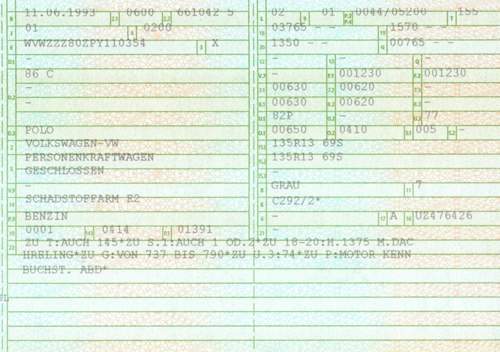 11.06.1993 0600 661042 5
01 0200
WVWZZZ80ZPY110354 X
-
86 C
-
-
POLO
VOLKSWAGEN-VW
PERSONENKRAFTWAGEN
GESCHLOSSEN
-
SCHADSTOFFARM E2
BENZIN
0001 0414 01391
02 01 0044/05200 155
03765 - - 1570 - -
1350 - - 00765 - -
- - -
- 001230 001230
00630 00620 -
00630 00620 -
82P - 77
00650 0410 005 -
135R13 69S
135R13 69S
-
GRAU 7
C292/2*
- A UZ476426
-
ZU T:AUCH 145*ZU S.1:AUCH 1 OD.2*ZU 18-20:H.1375 M.DAC
HRELING*ZU G:VON 737 BIS 790*ZU U.3:74*ZU P:MOTOR KENN
BUCHST. ABD*